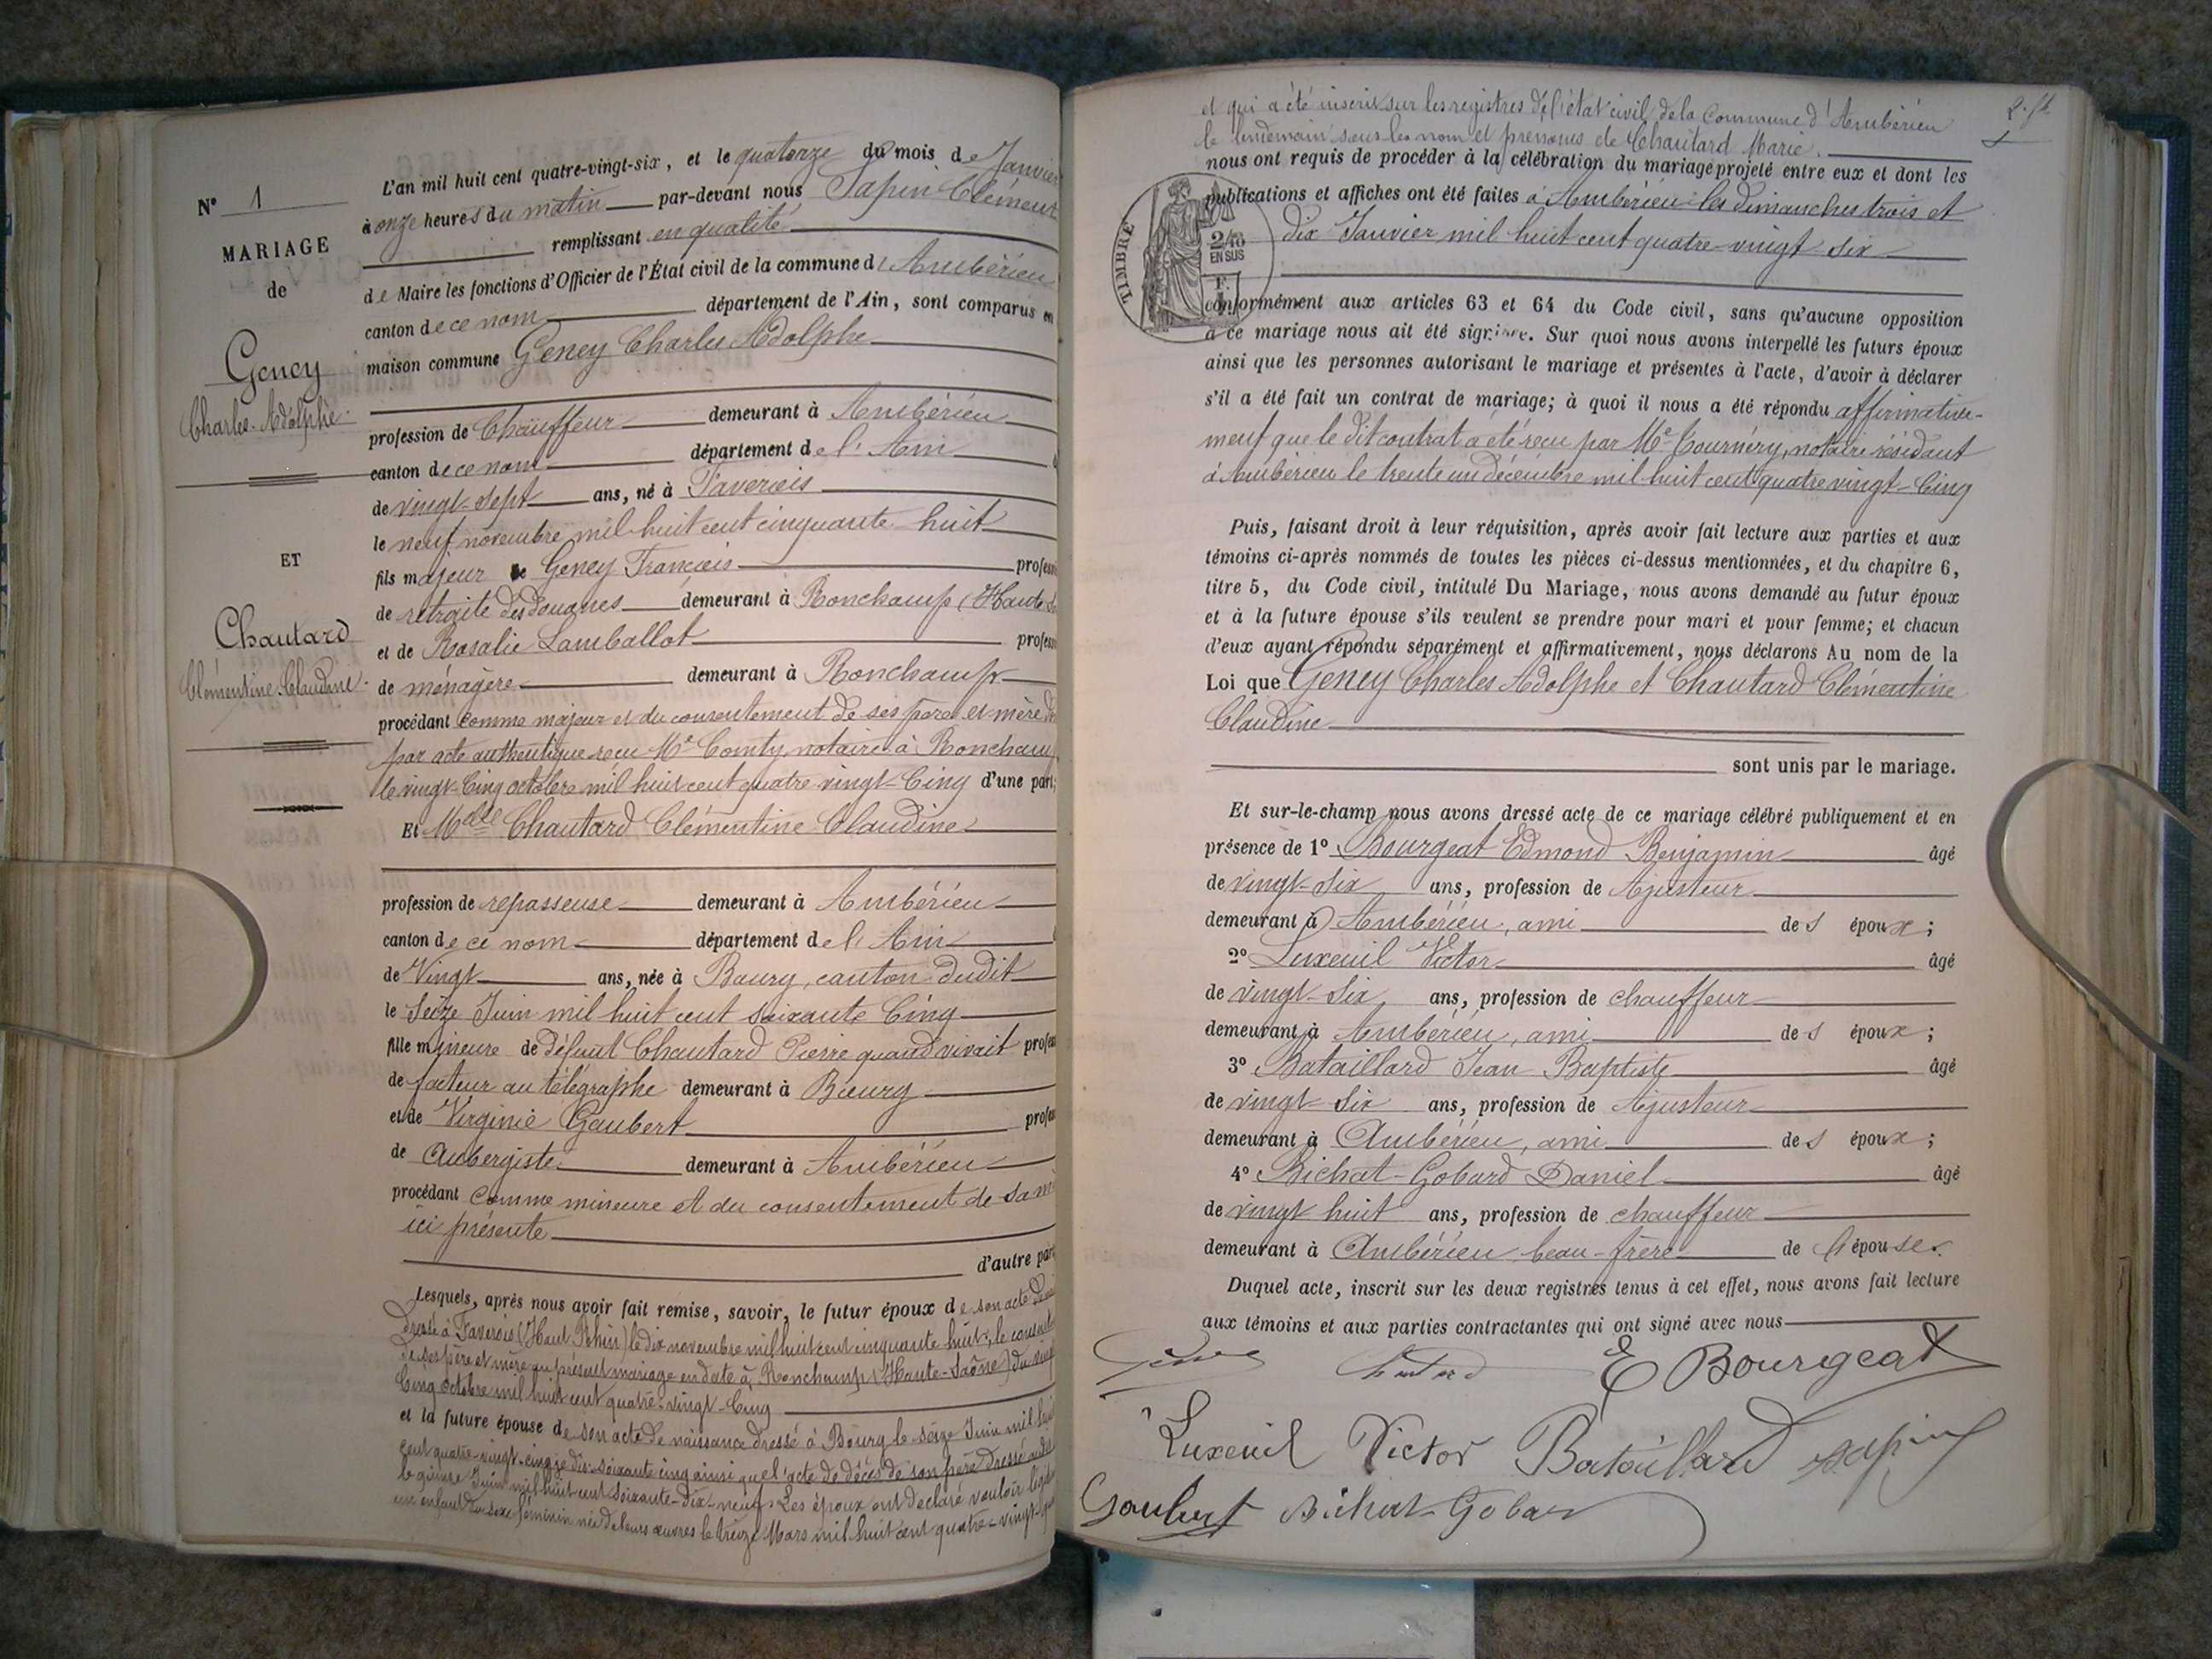 N° 1
MARIAGE
de
Geney
Charles-Adolphe
ET
Chautard
Clémentine Claudine
L'an mil huit cent quatre-vingt-six, et le quatorze du mois de Janvier
à onze heures du matin par-devant nous Sapin Clément
remplissant en qualité
de Maire les fonctions d'Officier de l'État civil de la commune d'Ambérieu
canton de ce nom département de l'Ain, sont comparus en
maison commune Geney Charles Adolphe
profession de Chauffeur demeurant à Ambérieu
canton de ce nom département de l'Ain
de vingt-sept ans, né à Faverois
le neuf novembre mil huit cent cinquante huit
fils majeur de Geney François profess
de retraité des douanes demeurant à Ronchamp (Haute
et de Rosalie Lamballot profess
de ménagère demeurant à Ronchamp
procédant comme majeur et du consentement de ses père et mère
par acte authentique reçu Me Comty, notaire à Ronchamp
le vingt-Cinq octobre mil huit cent quatre vingt-Cinq d'une part;
Et Mdlle Chautard Clémentine Claudine
profession de repasseuse demeurant à Ambérieu
canton de ce nom département de l'Ain
de Vingt ans, née à Bourg, canton dudit
le Seize Juin mil huit cent soixante Cinq
fille mineure de défunt Chautard Pierre quand vivait profess
de facteur au télégraphe demeurant à Bourg
et de Virginie Gaubert profess
de Aubergiste demeurant à Ambérieu
procédant comme mineure et du consentement de sa
ici présente
d'autre part
Lesquels, après nous avoir fait remise, savoir, le futur époux de son acte de
dressé à Faverois (Haut Rhin) le dix novembre mil huit cent cinquante huit, le
de ses père et mère au présent mariage en date à Ronchamp (Haute-Saône) du vingt
Cinq octobre mil huit cent quatre-vingt-Cinq
et la future épouse de son acte de naissance dressé à Bourg le seize Juin mil huit
cent soixante cinq ainsi que l'acte de décès de son père dressé
le quinze Juin mil huit cent soixante-dix-neuf. Les époux ont déclaré vouloir
un enfant du sexe féminin né de leurs œuvres le treize Mars mil huit cent quatre-vingt
2. ft
et qui a été inscrit sur les registres de l'état civil de la Commune d'Ambérieu
le lendemain sous les nom et prénoms de Chautard Marie.
nous ont requis de procéder à la célébration du mariage projeté entre eux et dont les
publications et affiches ont été faites à Ambérieu les dimanches trois et
dix Janvier mil huit cent quatre-vingt six
TIMBRE
2/10
EN SUS
conformément aux articles 63 et 64 du Code civil, sans qu'aucune opposition
à ce mariage nous ait été signifiée. Sur quoi nous avons interpellé les futurs époux
ainsi que les personnes autorisant le mariage et présentes à l'acte, d'avoir à déclarer
s'il a été fait un contrat de mariage; à quoi il nous a été répondu affirmative-
ment que le dit contrat a été reçu par Me Tournéry, notaire résidant
à Ambérieu le trente un décembre mil huit cent quatre vingt-Cinq
Puis, faisant droit à leur réquisition, après avoir fait lecture aux parties et aux
témoins ci-après nommés de toutes les pièces ci-dessus mentionnées, et du chapitre 6,
titre 5, du Code civil, intitulé Du Mariage, nous avons demandé au futur époux
et à la future épouse s'ils veulent se prendre pour mari et pour femme; et chacun
d'eux ayant répondu séparément et affirmativement, nous déclarons Au nom de la
Loi que Geney Charles Adolphe et Chautard Clémentine
Claudine
sont unis par le mariage.
Et sur-le-champ nous avons dressé acte de ce mariage célébré publiquement et en
présence de 1° Bourgeat Edmond Benjamin âgé
de vingt-six ans, profession de Ajusteur
demeurant à Ambérieu, ami des époux;
2° Luxeuil Victor âgé
de vingt-six ans, profession de chauffeur
demeurant à Ambérieu, ami des époux;
3° Bataillard Jean Baptiste âgé
de vingt-six ans, profession de Ajusteur
demeurant à Ambérieu, ami des époux;
4° Bichat-Gobard Daniel âgé
de vingt huit ans, profession de chauffeur
demeurant à Ambérieu beau-frère de l'épouse.
Duquel acte, inscrit sur les deux registres tenus à cet effet, nous avons fait lecture
aux témoins et aux parties contractantes qui ont signé avec nous
E Bourgeat
Luxeuil Victor Bataillard Sapin
Gaubert Bichat-Gobard